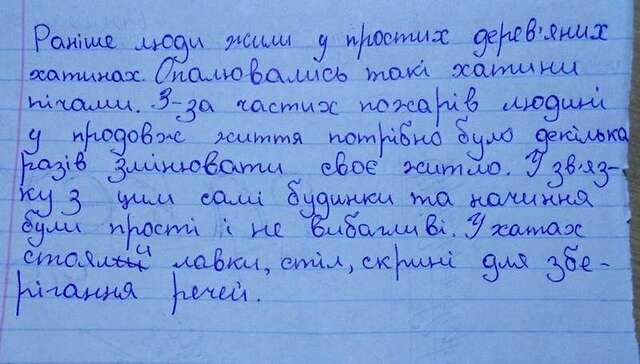 Раніше люди жили у простих дерев'яних
хатинах. Опалювались такі хатини
пічами. З-за частих пожарів людині
у продовж життя потрібно було декілька
разів змінювати своє житло. У зв'яз-
ку з цим самі будинки та начиння
були прості і не вибагливі. У хатах
стояли лавки, стіл, скрині для збе-
рігання речей.